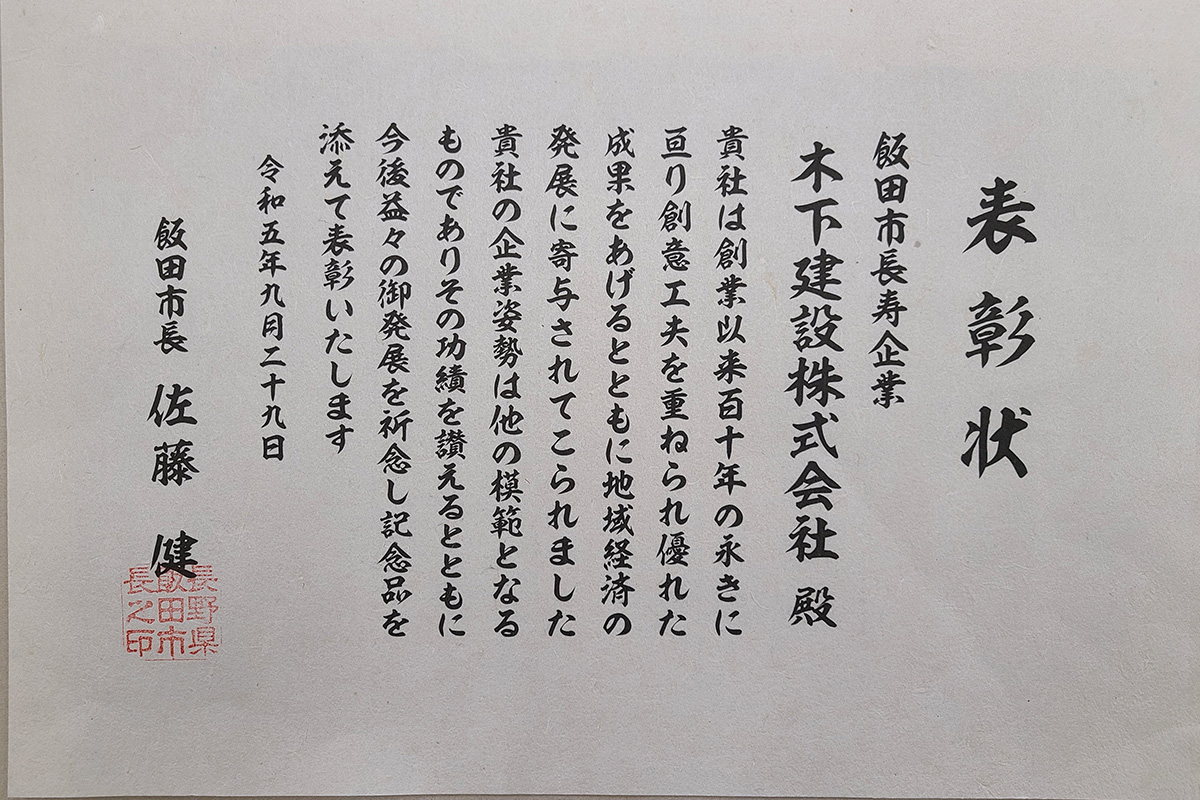 表彰状
飯田市長寿企業
木下建設株式会社 殿
貴社は創業以来百十年の永きに
亘り創意工夫を重ねられ優れた
成果をあげるとともに地域経済の
発展に寄与されてこられました
貴社の企業姿勢は他の模範となる
ものでありその功績を讃えるとともに
今後益々の御発展を祈念し記念品を
添えて表彰いたします
令和五年九月二十九日
飯田市長 佐藤 健
長野県
飯田市
長之印